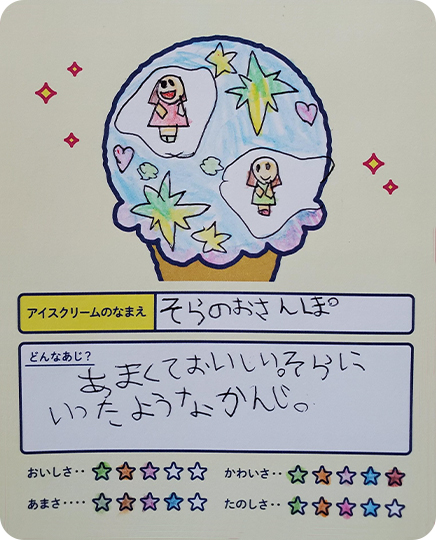 アイスクリームのなまえ
そらのおさんぽ
どんなあじ?
あまくておいしい。そらに
いったようなかんじ。
おいしさ‥
かわいさ‥
あまさ‥‥
たのしさ‥